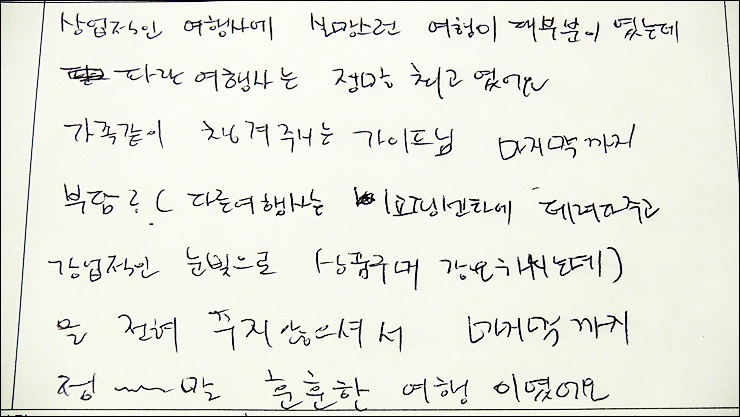 상업적인 여행사에 실망스런 여행이 대부분이 였는데
파란여행사는 정말 최고 였어요
가족같이 챙겨주시는 가이드님 마지막까지
부담 ( 다른여행사는 쇼핑센타에 데려다주고
강업적인 눈빛으로 상품구매 강요하시는데)
을 전혀 주지않으셔서 마지막까지
정~~말 훈훈한 여행 이였어요